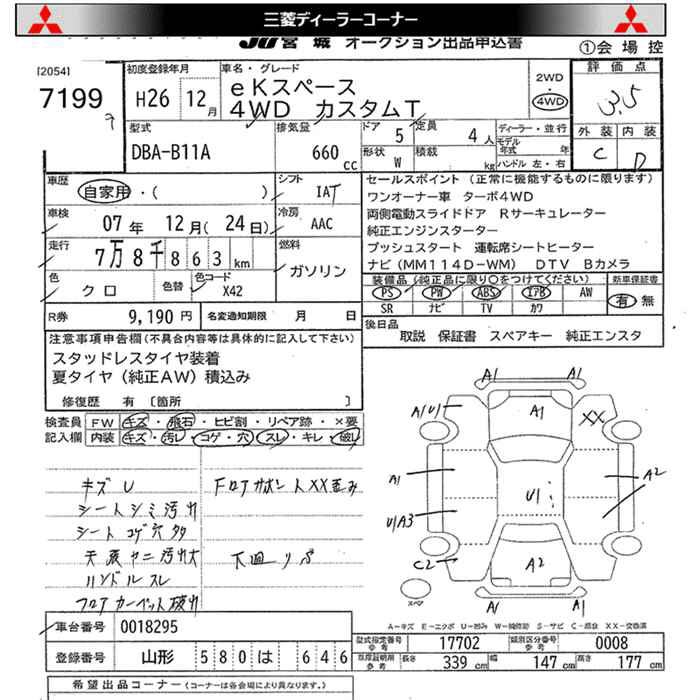 三菱ディーラーコーナー
JU宮城 オークション出品申込書
①会場控
[2054]
7199
初度登録年月
H26 12月
車名・グレード
eKスペース
4WD カスタムT
2WD
・
4WD
評価点
3.5
外装 内装
C D
型式
DBA-B11A
排気量
660cc
ドア 5
定員 4人
形状 W
積載 kg
ディーラー・並行
モデル年式 年
ハンドル 左・右
車歴
自家用・( )
シフト
IAT
車検
07年 12月(24日)
冷房
AAC
走行
7万8千863km
燃料
ガソリン
色
クロ
色替
色コード
X42
R券 9,190円
名変通知期限 月 日
セールスポイント(正常に機能するものに限ります)
ワンオーナー車 ターボ4WD
両側電動スライドドア Rサーキュレーター
純正エンジンスターター
プッシュスタート 運転席シートヒーター
ナビ(MM114D-WM) DTV Bカメラ
装備品(純正品に限り○をつけてください)
PS PW ABS エアB AW
SR ナビ TV カワ
新車保証書
有 無
後日品
取説 保証書 スペアキー 純正エンスタ
注意事項申告欄(不具合内容等は具体的に記入して下さい)
スタッドレスタイヤ装着
夏タイヤ(純正AW)積込み
修復歴 有[箇所 ]
検査員 FW キズ・飛石・ヒビ割・リペア跡・×要
記入欄 内装 キズ・汚レ・コゲ・穴・スレ・キレ・破レ
キズU
シートシミ汚レ
シートコゲ穴タ
天張ヤニ汚レ大
ハンドルスレ
フロアカーペット破レ
フロアサポートXX歪み
下廻りサビ
A1 A1
A1U1 A1 XX
A1 A2
U1
U1A3
C2 A2
A1 A1
スペア
A-キズ E-エクボ U-凹み W-補修跡 S-サビ C-腐食 XX-交換済
車台番号 0018295
登録番号 山形 580 は 646
型式指定番号 参考 17702
類別区分番号 参考 0008
参考 長さ 339cm 幅 147cm 高さ 177cm
希望出品コーナー(コーナーは各会場により異なります。)